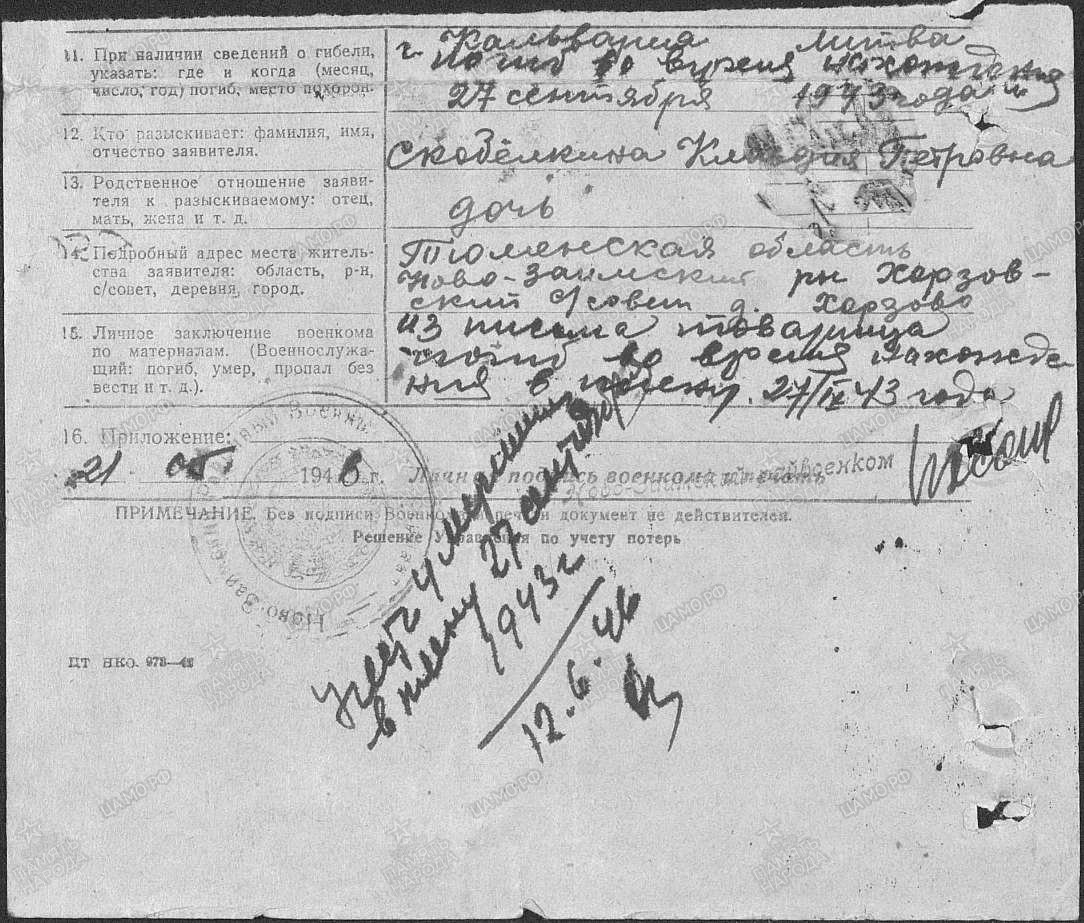 г. Кальвария Литва
11. При наличии сведений о гибели, погиб во время нахождения
указать: где и когда (месяц,
число, год) погиб, место похорон. 27 сентября 1943 года
12. Кто разыскивает: фамилия, имя,
отчество заявителя. Скобёлкина Клавдия Петровна
13. Родственное отношение заяви-
теля к разыскиваемому: отец,
мать, жена и т. д. дочь
14. Подробный адрес места житель- Тюменская область
ства заявителя: область, р-н, Ново-Заимский рн Хорзов-
с/совет, деревня, город. ский с/совет д. Хорзово
15. Личное заключение военкома из письма товарища
по материалам. (Военнослужа- погиб во время нахожде
щий: погиб, умер, пропал без ния в плену 27/IX 43 года
вести и т. д.).
16. Приложение:
21 05 1946 г. Личная подпись военкома и печать
Ново-Заимский райвоенком
ПРИМЕЧАНИЕ. Без подписи Военкома и печати документ не действителен.
Решение Управления по учету потерь
учесть умершим
в плену 27 сентября
1943 г
12.6.46
ЦТ НКО. 973—